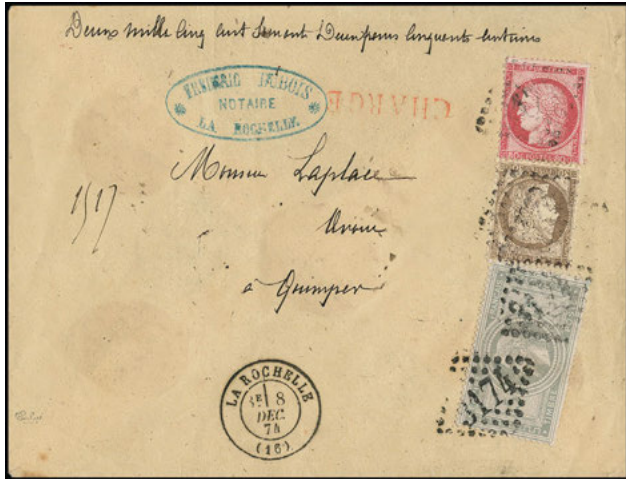 Deux mille cinq cent soixante Deux francs cinquante centimes
FREDERIC DUBOIS
NOTAIRE
LA ROCHELLE
CHARGÉ
Monsieur Laplace
Avoué
à Quimper
1517
LA ROCHELLE
8
DEC.
74
(16)
3174